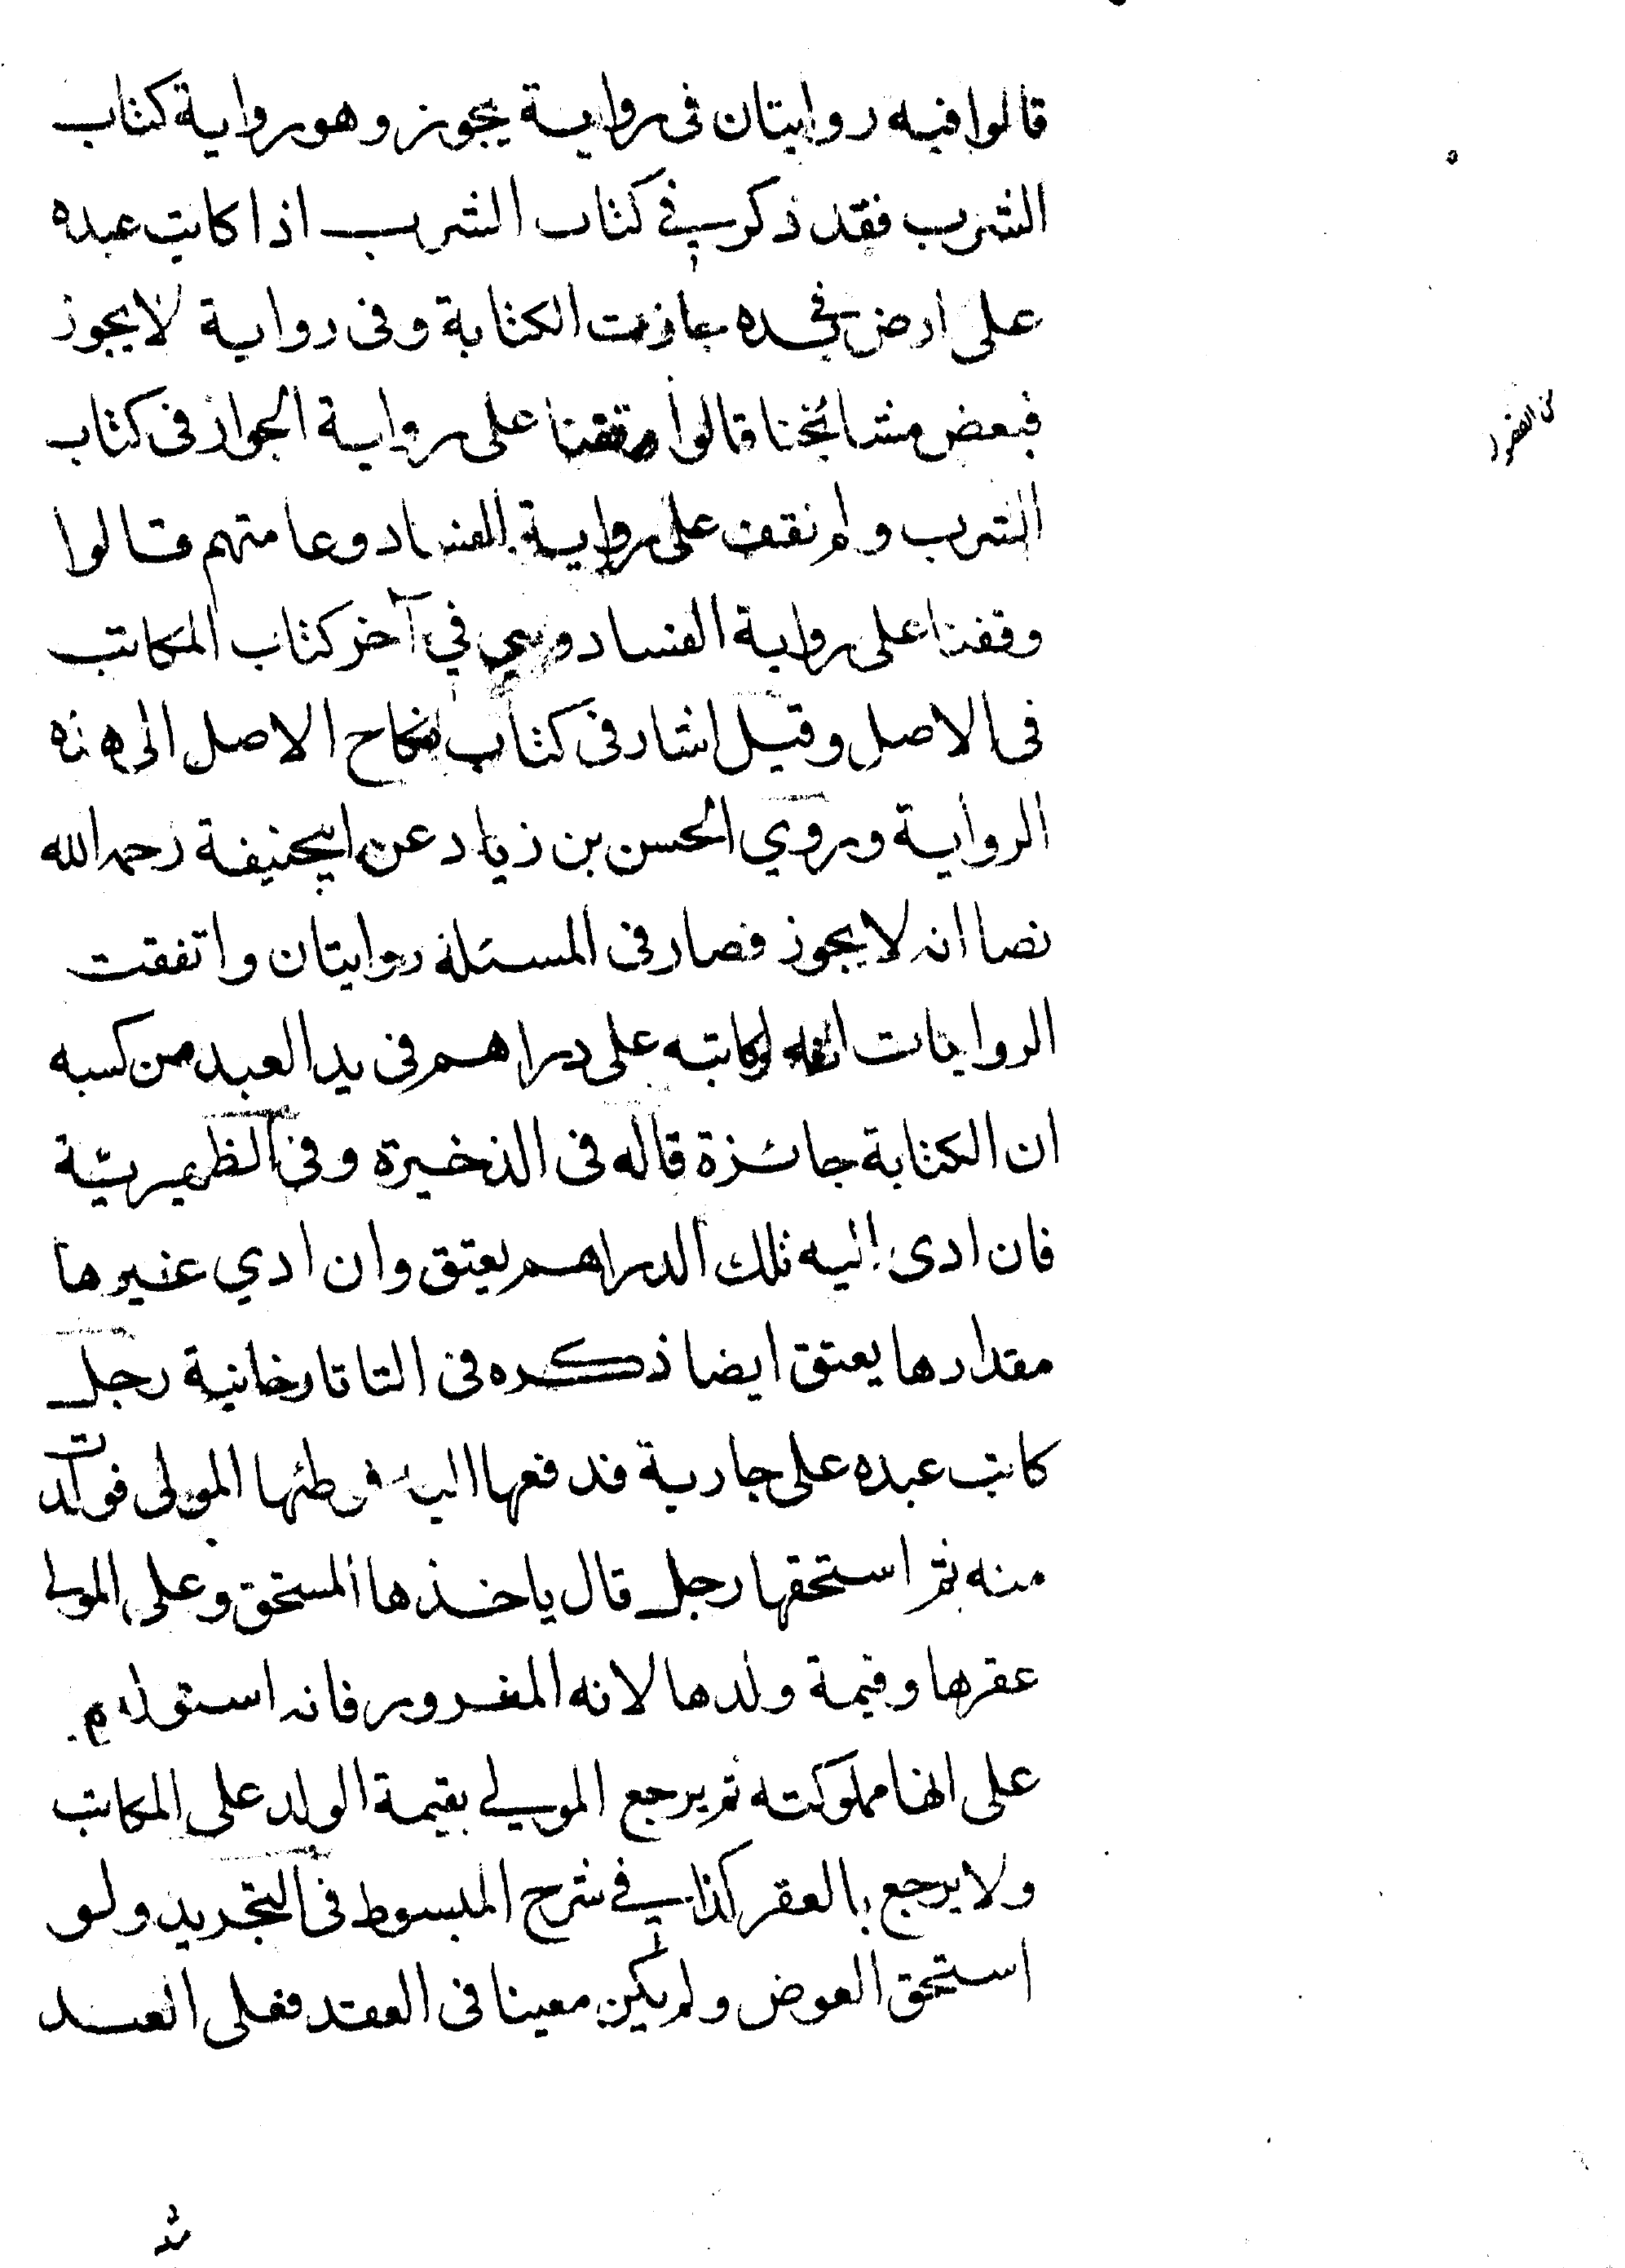 قالوا فيه روايتان فى رواية يجوز وهو رواية كتاب
الشرب فقد ذكر في كتاب الشرب اذا كاتب عبده
على ارض في يده جازت الكتابة وفى رواية لا يجوز
فبعض مشائخنا قالوا وقفنا على رواية الجواز فى كتاب
الشرب ولم نقف على رواية الفساد وعامتهم قالوا
وقفنا على رواية الفساد وهي في آخر كتاب المكاتب
فى الاصل وقيل اشار فى كتاب نكاح الاصل الى هذه
الرواية وروي الحسن بن زياد عن ابيحنيفة رحمه الله
نصا انه لا يجوز فصار فى المسئلة روايتان واتفقت
الروايات انه لو كاتبه على دراهم فى يد العبد من كسبه
ان الكتابة جائزة قاله فى الذخيرة وفى الظهيريّة
فان ادى اليه تلك الدراهم يعتق وان ادي غيرها
مقدارها يعتق ايضا ذكره فى التاتارخانية رجل
كاتب عبده على جارية فدفعها اليه فوطئها المولى فولدت
منه ثم استحقها رجل قال ياخذها المستحق وعلى المولى
عقرها وقيمة ولدها لانه المغرور فانه استولدها
على انها مملوكته ثم يرجع المولي بقيمة الولد على المكاتب
ولا يرجع بالعقر كذا في شرح المبسوط فى التجريد ولو
استحق العوض ولم يكن معينا فى العقد فعلى العبد